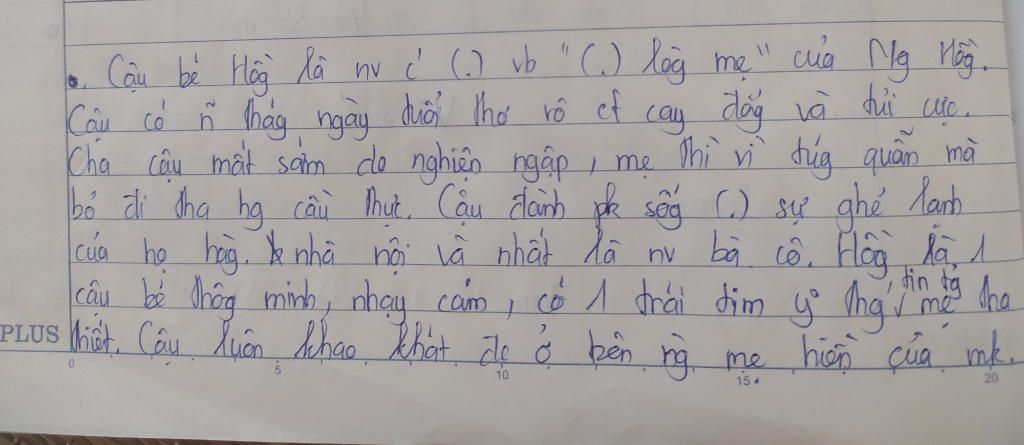 . Cậu bé Hồg là nv c' (.) vb "(.) lòg mẹ" của Ng Hồg.
Cậu có ñ thág ngày tuổi thơ vô cf cay đắg và tủi cực.
Cha cậu mất sớm do nghiện ngập, mẹ thì vì túg quẫn mà
bỏ đi tha hg cầu thực. Cậu đành pk sốg (.) sự ghẻ lạnh
của họ hàg nhà nội và nhất là nv bà cô. Hồg là 1
cậu bé thôg minh, nhạy cảm, có 1 trái tim yº thg, tin tg mẹ tha
thiết. Cậu luôn khao khát đc ở bên ng mẹ hiền của mk.
PLUS
0 5 10 15 20